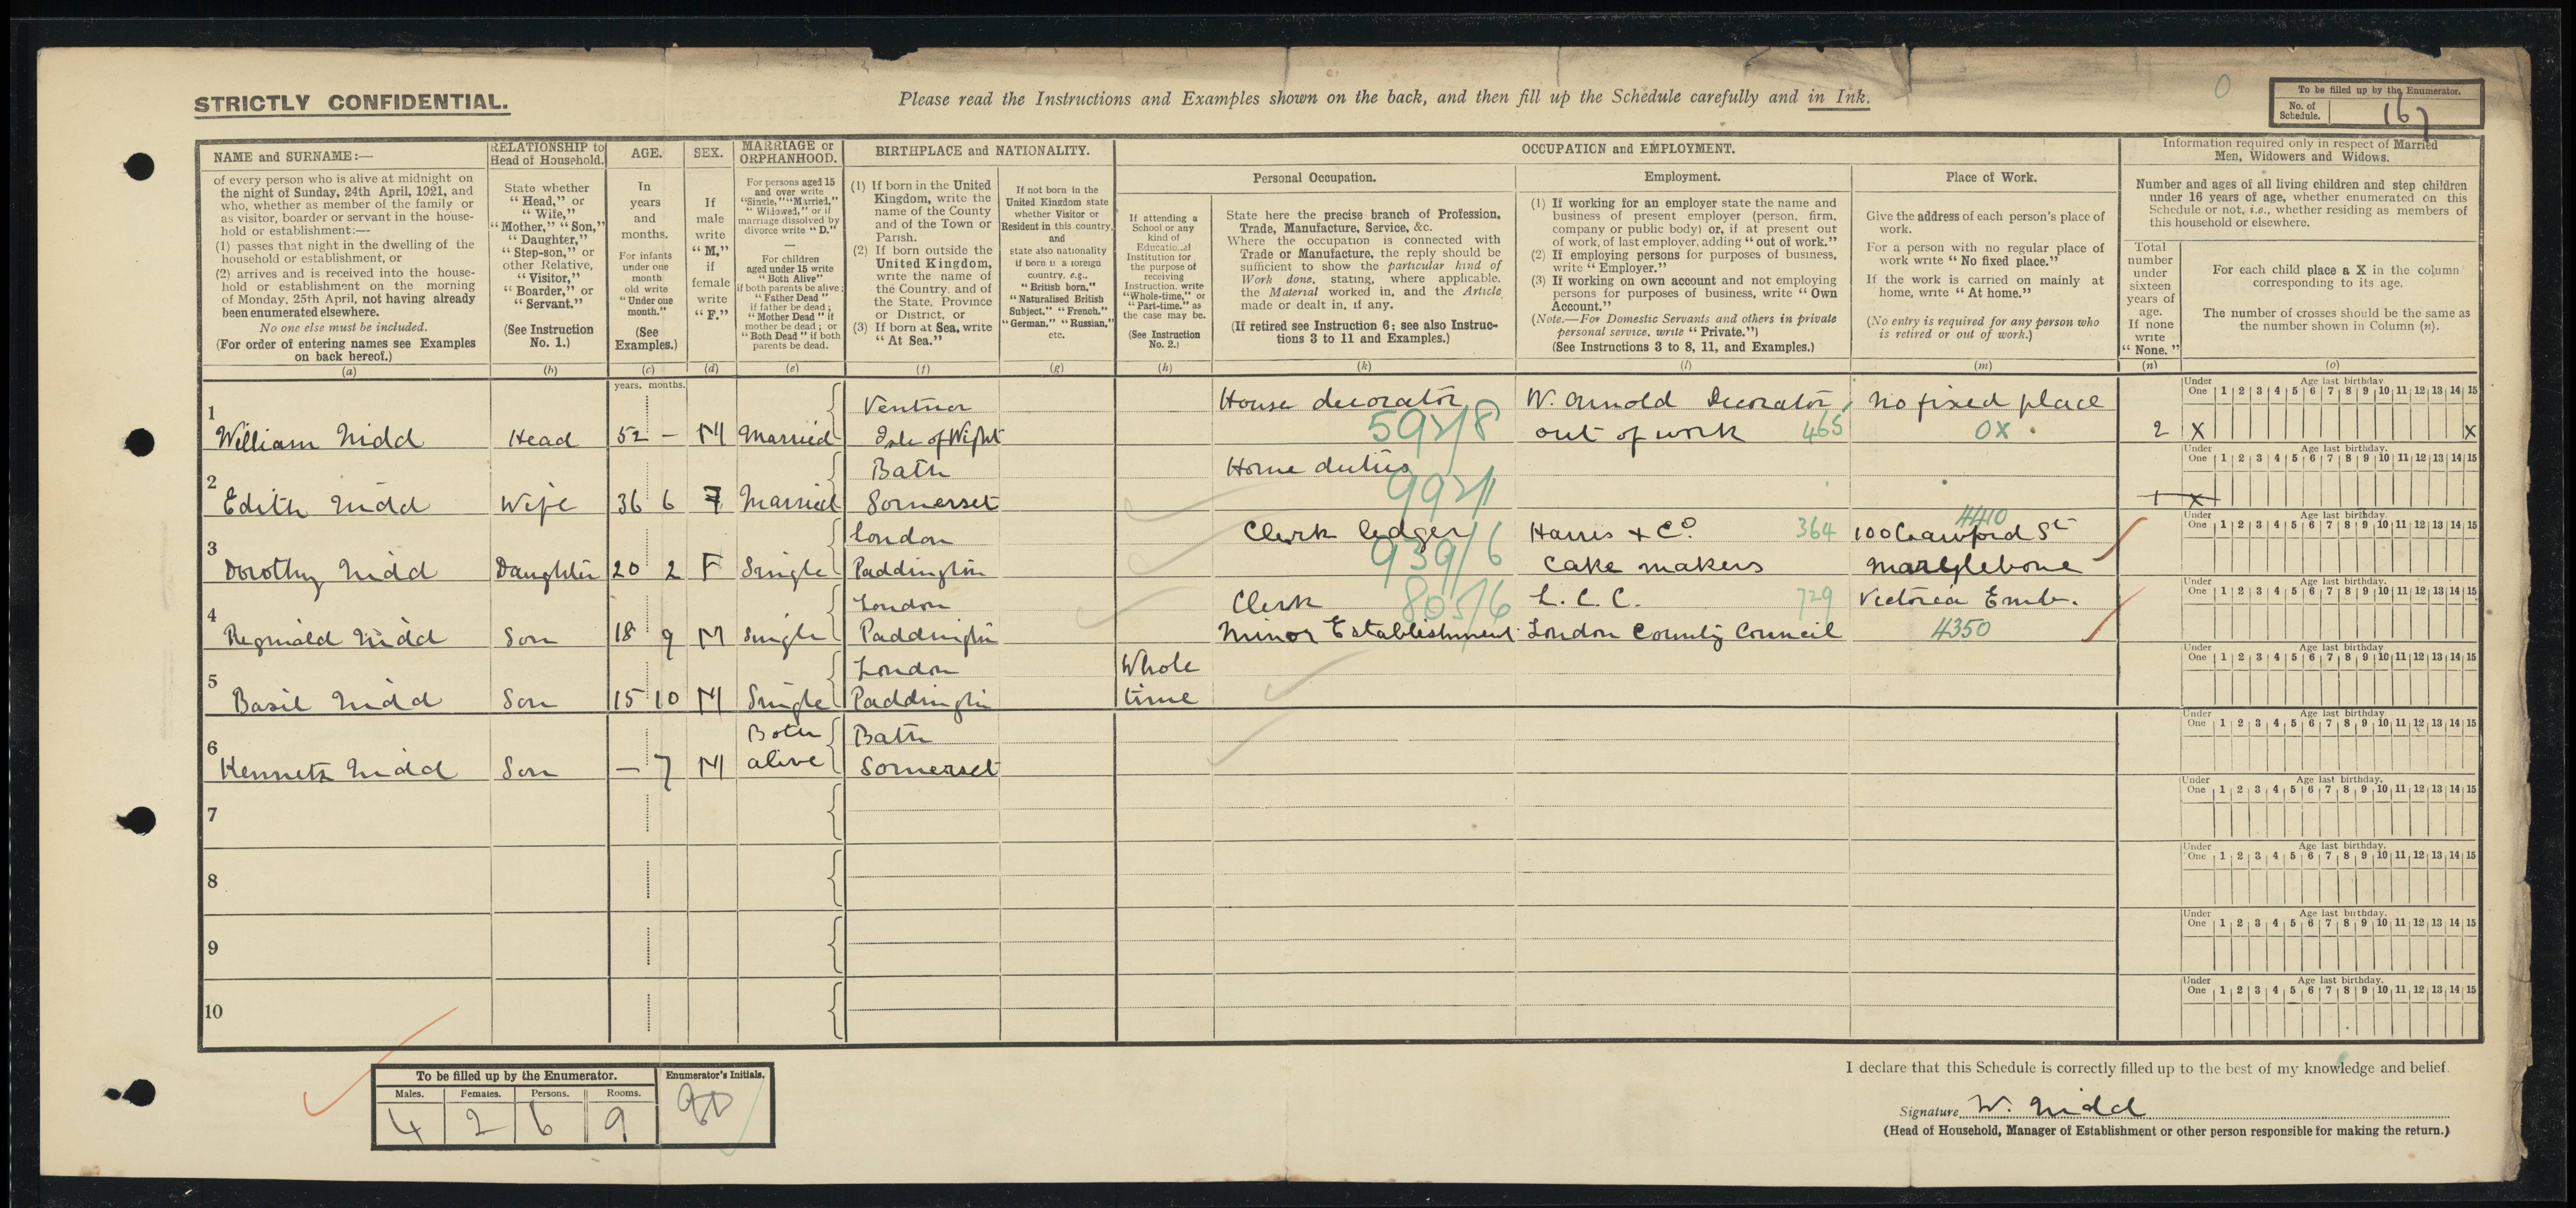 STRICTLY CONFIDENTIAL.
Please read the Instructions and Examples shown on the back, and then fill up the Schedule carefully and in Ink.
0
To be filled up by the Enumerator.
No. of Schedule. 167
NAME and SURNAME:—
of every person who is alive at midnight on
the night of Sunday, 24th April, 1921, and
who, whether as member of the family or
as visitor, boarder or servant in the house-
hold or establishment:—
(1) passes that night in the dwelling of the
household or establishment, or
(2) arrives and is received into the house-
hold or establishment on the morning
of Monday, 25th April, not having already
been enumerated elsewhere.
No one else must be included.
(For order of entering names see Examples
on back hereof.)
(a)
RELATIONSHIP to
Head of Household.
State whether
"Head," or
"Wife,"
"Mother," "Son,"
"Daughter,"
"Step-son," or
other Relative,
"Visitor,"
"Boarder," or
"Servant."
(See Instruction
No. 1.)
(b)
AGE.
In
years
and
months.
For infants
under one
month
old write
"Under one
month."
(See
Examples.)
(c)
SEX.
If
male
write
"M,"
if
female
write
"F."
(d)
MARRIAGE or
ORPHANHOOD.
For persons aged 15
and over write
"Single," "Married,"
"Widowed," or if
marriage dissolved by
divorce write "D."
—
For children
aged under 15 write
"Both Alive"
if both parents be alive;
"Father Dead"
if father be dead;
"Mother Dead" if
mother be dead; or
"Both Dead" if both
parents be dead.
(e)
BIRTHPLACE and NATIONALITY.
(1) If born in the United
Kingdom, write the
name of the County
and of the Town or
Parish.
(2) If born outside the
United Kingdom,
write the name of
the Country, and of
the State, Province
or District, or
(3) If born at Sea, write
"At Sea."
(f)
If not born in the
United Kingdom state
whether Visitor or
Resident in this country,
and
state also nationality
if born in a foreign
country, e.g.,
"British born,"
"Naturalised British
Subject," "French,"
"German," "Russian,"
etc.
(g)
OCCUPATION and EMPLOYMENT.
If attending a
School or any
kind of
Educational
Institution for
the purpose of
receiving
Instruction, write
"Whole-time," or
"Part-time," as
the case may be.
(See Instruction
No. 2.)
(h)
Personal Occupation.
State here the precise branch of Profession,
Trade, Manufacture, Service, &c.
Where the occupation is connected with
Trade or Manufacture, the reply should be
sufficient to show the particular kind of
Work done, stating, where applicable,
the Material worked in, and the Article
made or dealt in, if any.
(If retired see Instruction 6; see also Instruc-
tions 3 to 11 and Examples.)
(k)
Employment.
(1) If working for an employer state the name and
business of present employer (person, firm,
company or public body) or, if at present out
of work, of last employer, adding "out of work."
(2) If employing persons for purposes of business,
write "Employer."
(3) If working on own account and not employing
persons for purposes of business, write "Own
Account."
(Note.—For Domestic Servants and others in private
personal service, write "Private.")
(See Instructions 3 to 8, 11, and Examples.)
(l)
Place of Work.
Give the address of each person's place of
work.
For a person with no regular place of
work write "No fixed place."
If the work is carried on mainly at
home, write "At home."
(No entry is required for any person who
is retired or out of work.)
(m)
Information required only in respect of Married
Men, Widowers and Widows.
Number and ages of all living children and step children
under 16 years of age, whether enumerated on this
Schedule or not, i.e., whether residing as members of
this household or elsewhere.
Total
number
under
sixteen
years of
age.
If none
write
"None."
(n)
For each child place a X in the column
corresponding to its age.
The number of crosses should be the same as
the number shown in Column (n).
(o)
years. months.
Under One Age last birthday 1 2 3 4 5 6 7 8 9 10 11 12 13 14 15
1 Ventnor House decorator W. Arnold Decorator, No fixed place
William Nidd Head 52 – M Married Isle of Wight 592/8 out of work 465 OX 2 X X
Under One Age last birthday. 1 2 3 4 5 6 7 8 9 10 11 12 13 14 15
2 Bath Home duties
Edith Nidd Wife 36 6 F Married Somerset 992/1 1 X
Under One Age last birthday. 1 2 3 4 5 6 7 8 9 10 11 12 13 14 15
3 London Clerk ledger Harris & Co. 364 100 Crawford St 4410
Dorothy Nidd Daughter 20 2 F Single Paddington 939/6 Cake makers Marylebone
Under One Age last birthday. 1 2 3 4 5 6 7 8 9 10 11 12 13 14 15
4 London Clerk 805/6 L. C. C. 729 Victoria Emb.
Reginald Nidd Son 18 9 M Single Paddington Minor Establishment London County Council 4350
Under One Age last birthday. 1 2 3 4 5 6 7 8 9 10 11 12 13 14 15
5 London Whole
Basil Nidd Son 15 10 M Single Paddington time
Under One Age last birthday. 1 2 3 4 5 6 7 8 9 10 11 12 13 14 15
6 Both Bath
Kenneth Nidd Son – 7 M alive Somerset
Under One Age last birthday. 1 2 3 4 5 6 7 8 9 10 11 12 13 14 15
7
Under One Age last birthday. 1 2 3 4 5 6 7 8 9 10 11 12 13 14 15
8
Under One Age last birthday. 1 2 3 4 5 6 7 8 9 10 11 12 13 14 15
9
Under One Age last birthday. 1 2 3 4 5 6 7 8 9 10 11 12 13 14 15
10
To be filled up by the Enumerator. Enumerator's Initials.
Males. Females. Persons. Rooms.
4 2 6 9
I declare that this Schedule is correctly filled up to the best of my knowledge and belief.
Signature W. Nidd
(Head of Household, Manager of Establishment or other person responsible for making the return.)